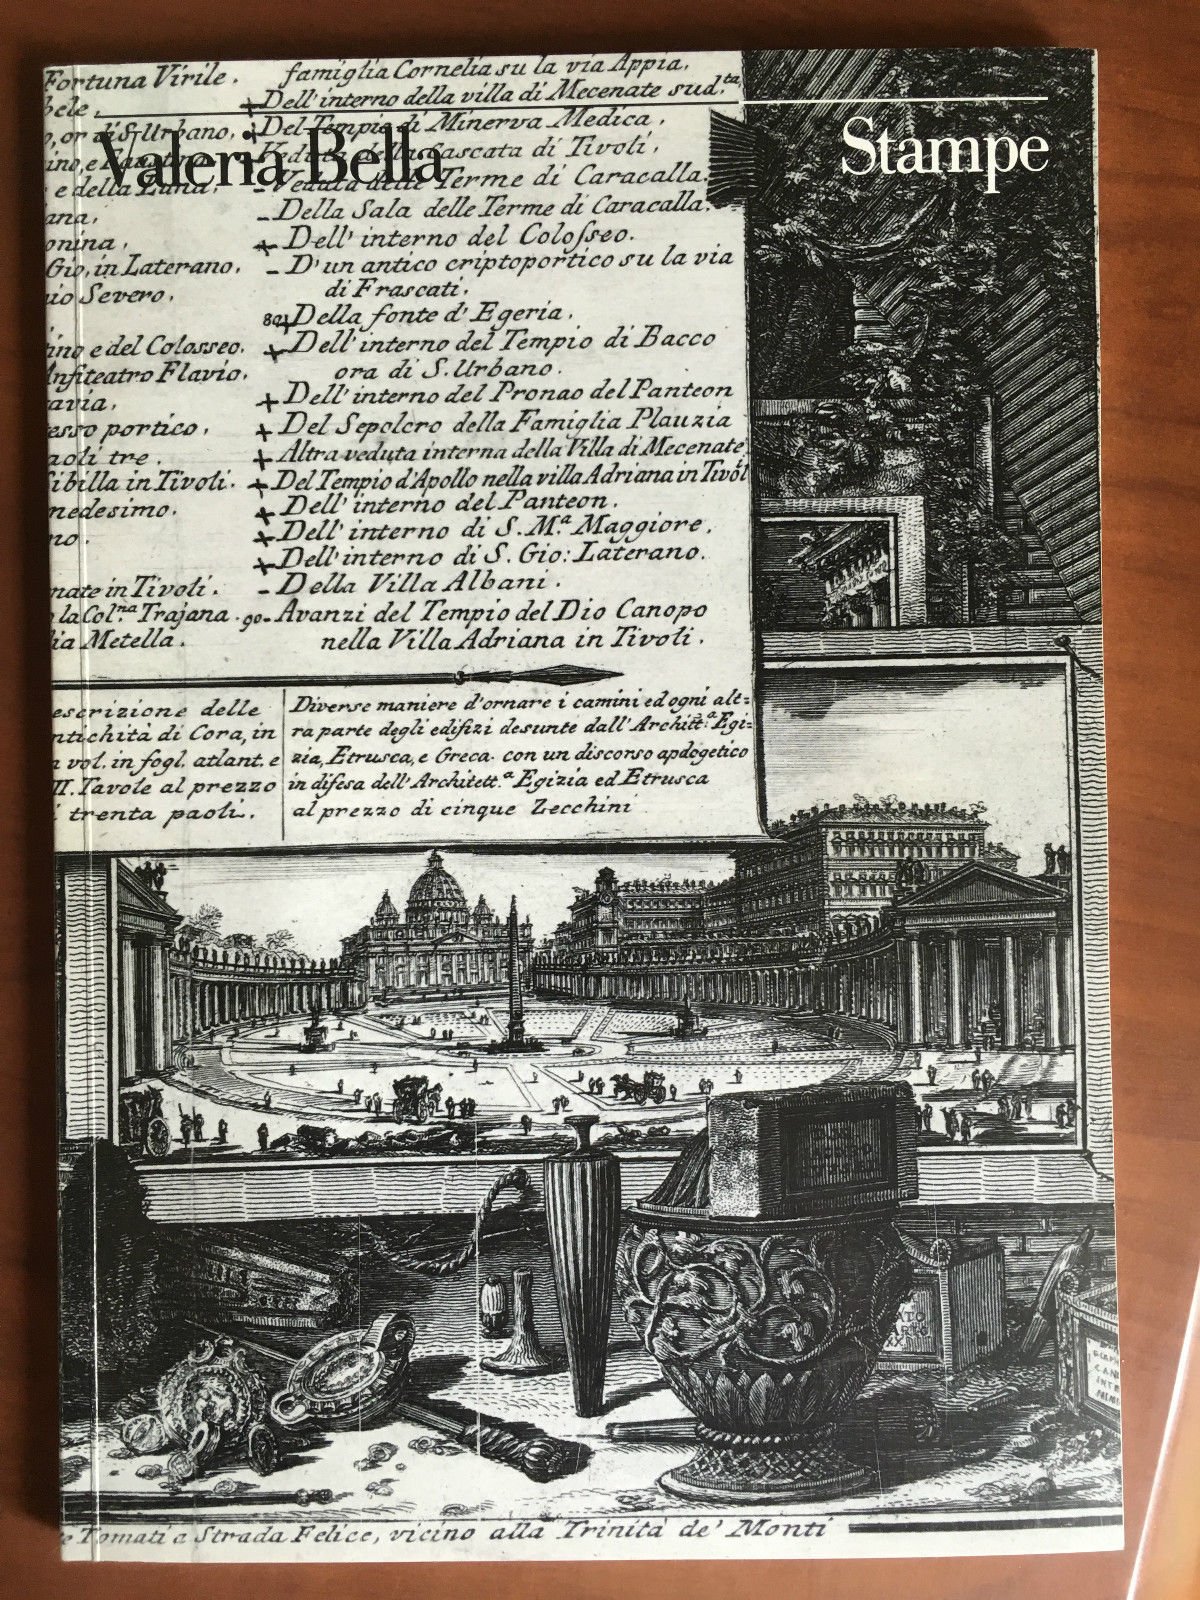 Valeria Bella
Stampe
Fortuna Virile.
bele,
o, or di S. Urbano.
ana,
onina,
Gio, in Laterano.
io Severo.
tino e del Colosseo.
Anfiteatro Flavio.
tavia,
esso portico,
aoli tre.
Sibilla in Tivoli.
medesimo.
no.
nate in Tivoli.
la Col.na Trajana.
lia Metella.
famiglia Cornelia su la via Appia.
Dell' interno della villa di Mecenate sud.ta
Del Tempio di Minerva Medica,
Veduta della Cascata di Tivoli,
Veduta delle Terme di Caracalla.
Della Sala delle Terme di Caracalla.
Dell' interno del Colosseo.
D'un antico criptoportico su la via
di Frascati,
80 Della fonte d' Egeria,
Dell' interno del Tempio di Bacco
ora di S. Urbano.
Dell' interno del Pronao del Panteon
Del Sepolcro della Famiglia Plauzia
Altra veduta interna della Villa di Mecenate
Del Tempio d'Apollo nella villa Adriana in Tivoli
Dell' interno del Panteon.
Dell' interno di S. M.a Maggiore,
Dell' interno di S. Gio: Laterano.
Della Villa Albani.
90 Avanzi del Tempio del Dio Canopo
nella Villa Adriana in Tivoli.
escrizione delle
ntichità di Cora, in
n vol. in fogl. atlant. e
II. Tavole al prezzo
i trenta paoli.
Diverse maniere d'ornare i camini ed ogni alt=
ra parte degli edifizi desunte dall' Architt.a Egi-
zia, Etrusca, e Greca. con un discorso apologetico
in difesa dell' Architett.a Egizia ed Etrusca
al prezzo di cinque Zecchini
e Tomati a Strada Felice, vicino alla Trinità de' Monti